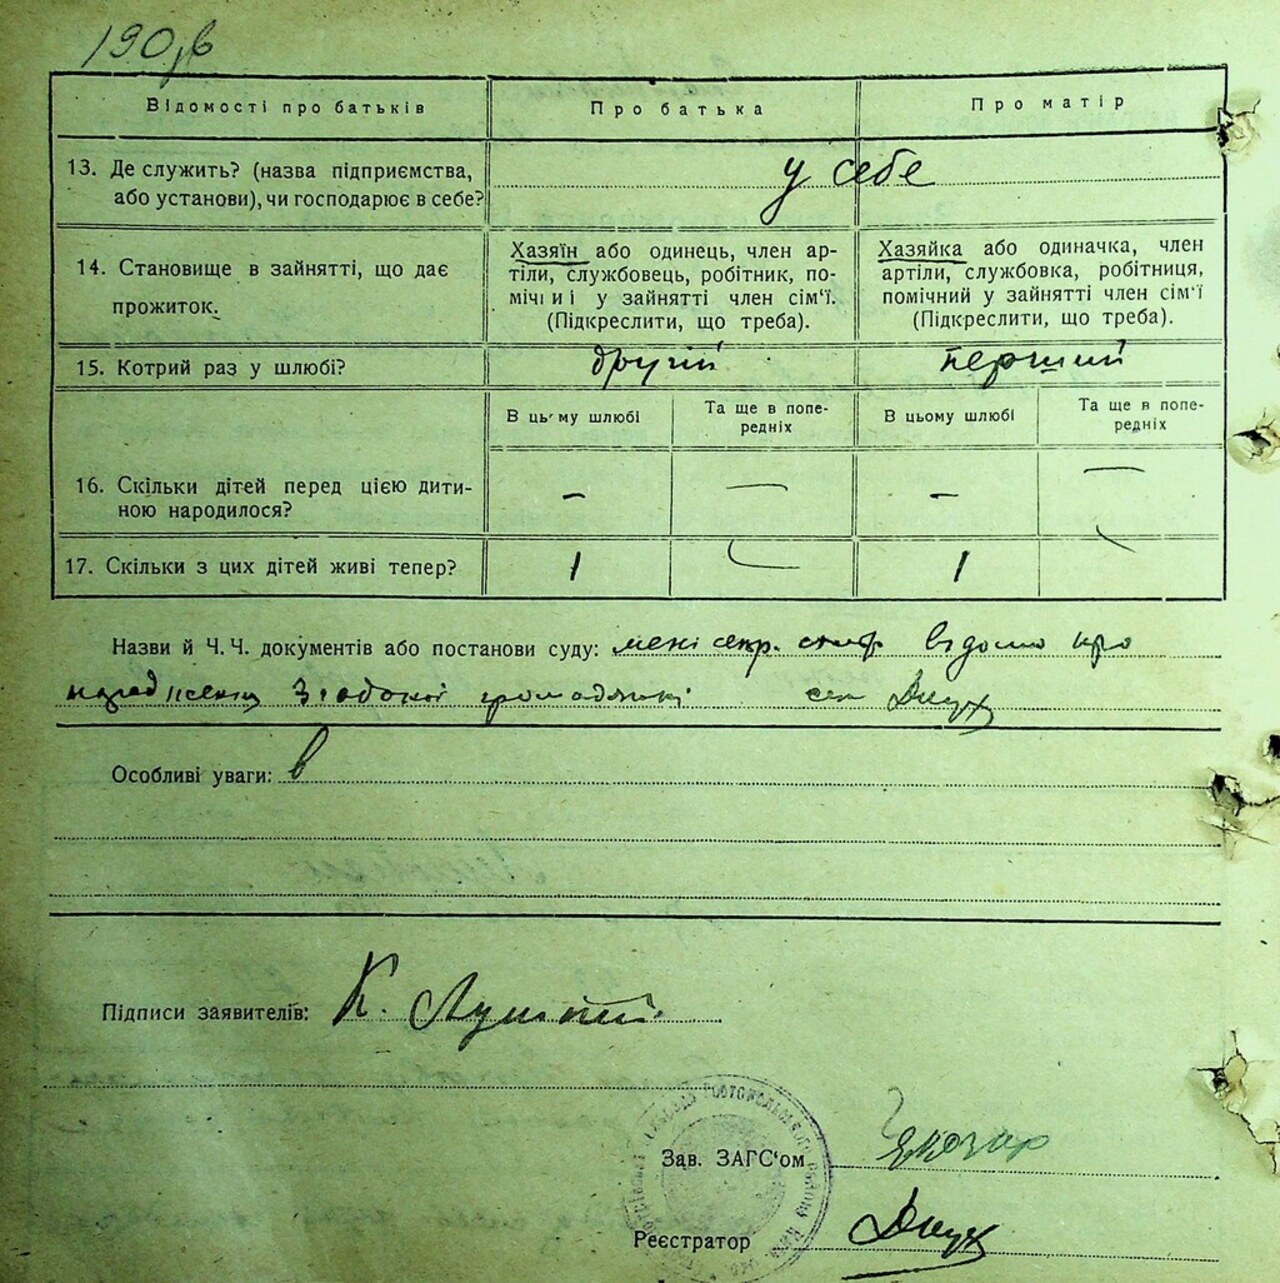 190, в
Відомості про батьків
Про батька
Про матір
13. Де служить? (назва підприємства,
або установи), чи господарює в себе?
у себе
14. Становище в зайнятті, що дає
прожиток.
Хазяїн або одинець, член ар-
тіли, службовець, робітник, по-
мічн и і у зайнятті член сім'ї.
(Підкреслити, що треба).
Хазяйка або одиначка, член
артіли, службовка, робітниця,
помічний у зайнятті член сім'ї
(Підкреслити, що треба).
15. Котрий раз у шлюбі?
другий
перший
В цьому шлюбі
Та ще в попе-
редніх
В цьому шлюбі
Та ще в попе-
редніх
16. Скільки дітей перед цією дити-
ною народилося?
–
—
–
—
17. Скільки з цих дітей живі тепер?
1
1
Назви й Ч. Ч. документів або постанови суду: мені секр. відомо про
народження громадянки Днух
Особливі уваги: в
Підписи заявителів: К.
Зав. ЗАГС'ом
Реєстратор Днух